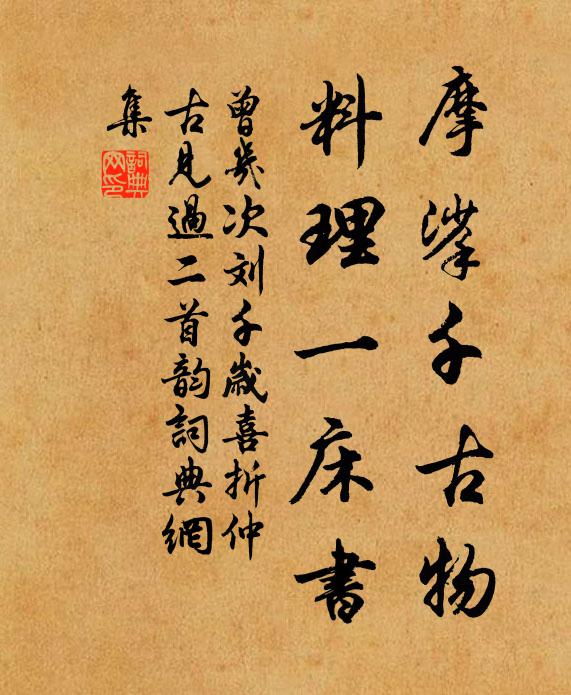 摩挲千古物
料理一床書
曾幾次刘千歲喜折仲
古見過二首韵詞典網
集
詞典
网印